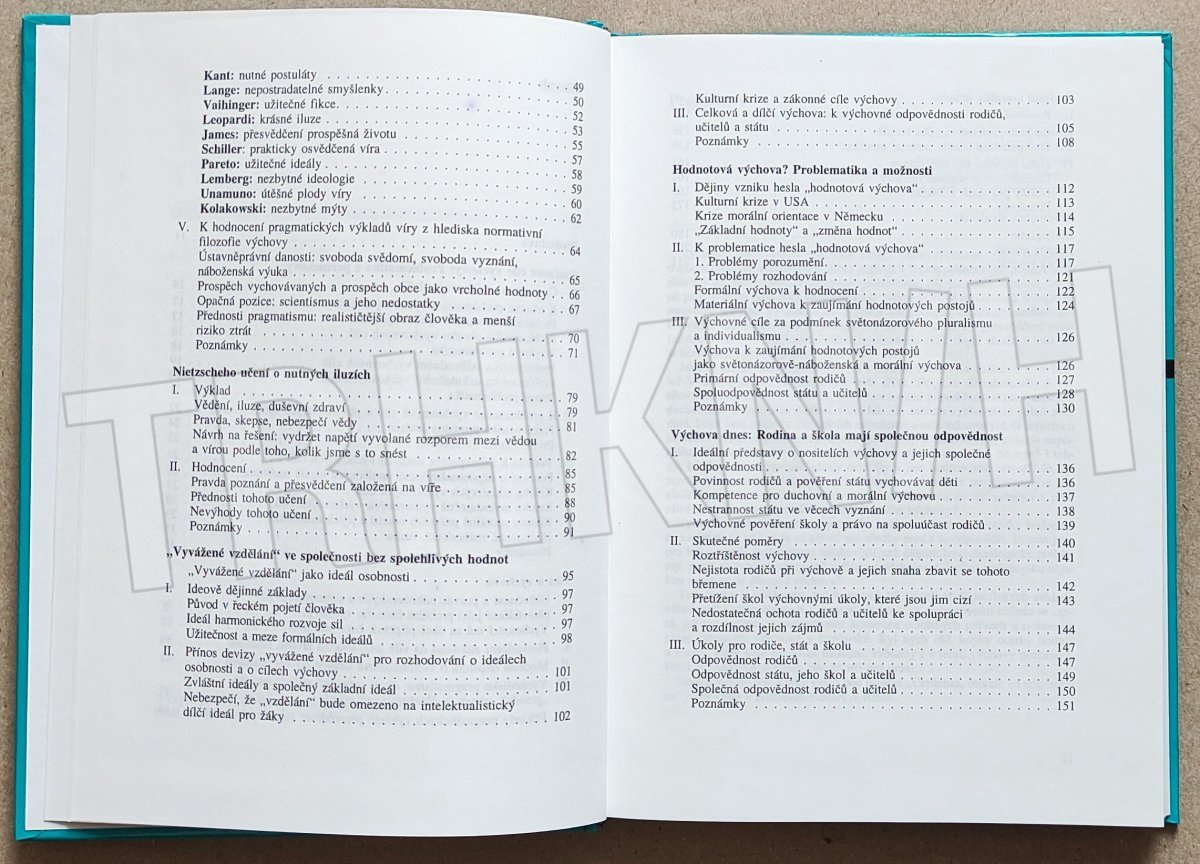 Kant: nutné postuláty . . . . . 49
Lange: nepostradatelné smyšlenky . . . . . 50
Vaihinger: užitečné fikce. . . . . . 52
Leopardi: krásné iluze . . . . . 53
James: přesvědčení prospěšná životu . . . . . 55
Schiller: prakticky osvědčená víra . . . . . 57
Pareto: užitečné ideály . . . . . 58
Lemberg: nezbytné ideologie . . . . . 59
Unamuno: útěšné plody víry . . . . . 60
Kolakowski: nezbytné mýty . . . . . 62
V. K hodnocení pragmatických výkladů víry z hlediska normativní
filozofie výchovy . . . . . 64
Ústavněprávní danosti: svoboda svědomí, svoboda vyznání,
náboženská výuka . . . . . 65
Prospěch vychovávaných a prospěch obce jako vrcholné hodnoty . . 66
Opačná pozice: scientismus a jeho nedostatky . . . . . 67
Přednosti pragmatismu: realističtější obraz člověka a menší
riziko ztrát . . . . . 70
Poznámky . . . . . 71
Nietzscheho učení o nutných iluzích
I. Výklad . . . . . 79
Vědění, iluze, duševní zdraví . . . . . 79
Pravda, skepse, nebezpečí vědy . . . . . 81
Návrh na řešení: vydržet napětí vyvolané rozporem mezi vědou
a vírou podle toho, kolik jsme s to snést . . . . . 82
II. Hodnocení . . . . . 85
Pravda poznání a přesvědčení založená na víře . . . . . 85
Přednosti tohoto učení . . . . . 88
Nevýhody tohoto učení . . . . . 90
Poznámky . . . . . 91
„Vyvážené vzdělání“ ve společnosti bez spolehlivých hodnot
„Vyvážené vzdělání“ jako ideál osobnosti . . . . . 95
I. Ideově dějinné základy . . . . . 97
Původ v řeckém pojetí člověka . . . . . 97
Ideál harmonického rozvoje sil . . . . . 97
Užitečnost a meze formálních ideálů . . . . . 98
II. Přínos devizy „vyvážené vzdělání“ pro rozhodování o ideálech
osobnosti a o cílech výchovy . . . . . 101
Zvláštní ideály a společný základní ideál . . . . . 101
Nebezpečí, že „vzdělání“ bude omezeno na intelektualistický
dílčí ideál pro žáky . . . . . 102
Kulturní krize a zákonné cíle výchovy . . . . . 103
III. Celková a dílčí výchova: k výchovné odpovědnosti rodičů,
učitelů a státu . . . . . 105
Poznámky . . . . . 108
Hodnotová výchova? Problematika a možnosti
I. Dějiny vzniku hesla „hodnotová výchova“ . . . . . 112
Kulturní krize v USA . . . . . 113
Krize morální orientace v Německu . . . . . 114
„Základní hodnoty“ a „změna hodnot“ . . . . . 115
II. K problematice hesla „hodnotová výchova“ . . . . . 117
1. Problémy porozumění. . . . . . 117
2. Problémy rozhodování . . . . . 121
Formální výchova k hodnocení . . . . . 122
Materiální výchova k zaujímání hodnotových postojů . . . . . 124
III. Výchovné cíle za podmínek světonázorového pluralismu
a individualismu . . . . . 126
Výchova k zaujímání hodnotových postojů
jako světonázorově-náboženská a morální výchova . . . . . 126
Primární odpovědnost rodičů . . . . . 127
Spoluodpovědnost státu a učitelů . . . . . 128
Poznámky . . . . . 130
Výchova dnes: Rodina a škola mají společnou odpovědnost
I. Ideální představy o nositelích výchovy a jejich společné
odpovědnosti . . . . . 136
Povinnost rodičů a pověření státu vychovávat děti . . . . . 136
Kompetence pro duchovní a morální výchovu . . . . . 137
Nestrannost státu ve věcech vyznání . . . . . 138
Výchovné pověření školy a právo na spoluúčast rodičů . . . . . 139
II. Skutečné poměry . . . . . 140
Roztříštěnost výchovy . . . . . 141
Nejistota rodičů při výchově a jejich snaha zbavit se tohoto
břemene . . . . . 142
Přetížení škol výchovnými úkoly, které jsou jim cizí . . . . . 143
Nedostatečná ochota rodičů a učitelů ke spolupráci
a rozdílnost jejich zájmů . . . . . 144
III. Úkoly pro rodiče, stát a školu . . . . . 147
Odpovědnost rodičů . . . . . 147
Odpovědnost státu, jeho škol a učitelů . . . . . 149
Společná odpovědnost rodičů a učitelů . . . . . 150
Poznámky . . . . . 151
TRHKNIH